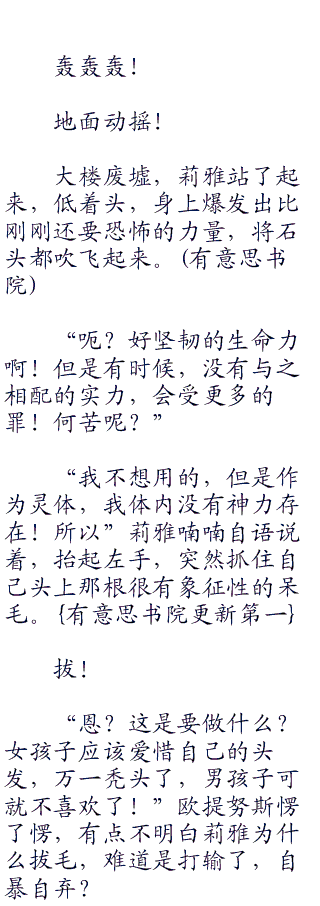 轰轰轰！
地面动摇！
大楼废墟，莉雅站了起
来，低着头，身上爆发出比
刚刚还要恐怖的力量，将石
头都吹飞起来。(有意思书
院)
“呃？好坚韧的生命力
啊！但是有时候，没有与之
相配的实力，会受更多的
罪！何苦呢？”
“我不想用的，但是作
为灵体，我体内没有神力存
在！所以”莉雅喃喃自语说
着，抬起左手，突然抓住自
己头上那根很有象征性的呆
毛。{有意思书院更新第一}
拔！
“恩？这是要做什么？
女孩子应该爱惜自己的头
发，万一秃头了，男孩子可
就不喜欢了！”欧提努斯愣
了愣，有点不明白莉雅为什
么拔毛，难道是打输了，自
暴自弃？